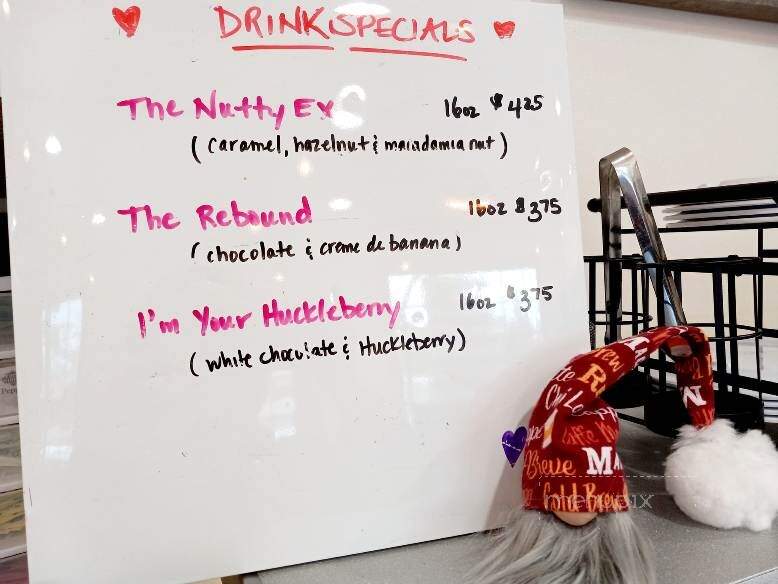 DRINK SPECIALS
The Nutty Ex 16oz $4.25
(caramel, hazelnut & macadamia nut)
The Rebound 16oz $3.75
(chocolate & creme de banana)
I'm Your Huckleberry 16oz $3.75
(white chocolate & Huckleberry)
Brew
Life
Cold Brew
menupix